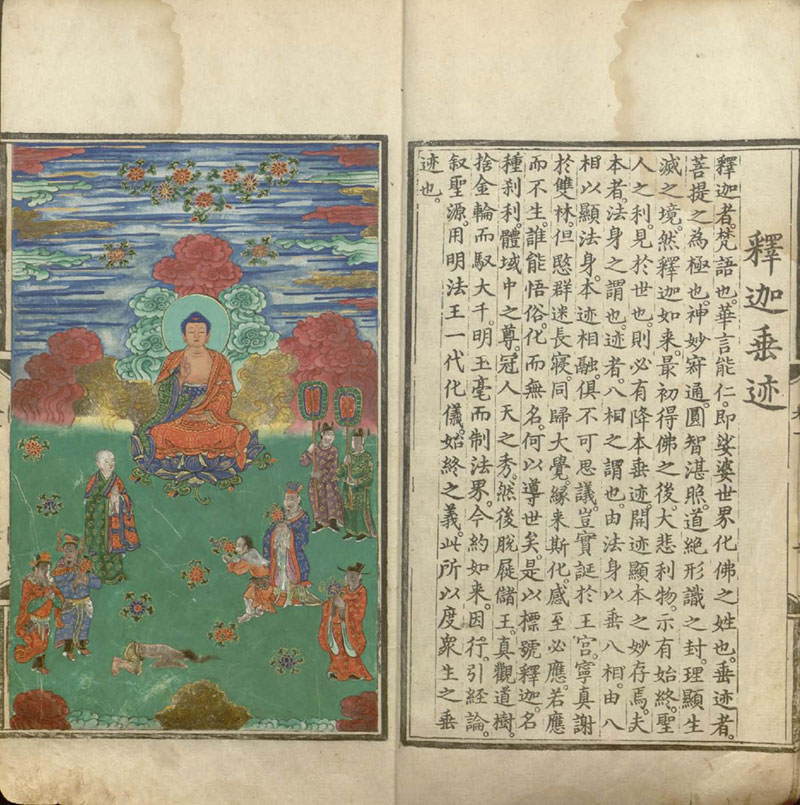 釋迦垂迹
釋迦者。梵語也。華言能仁。即娑婆世界化佛之姓也。垂迹者。
菩提之為極也。神妙寂通。圓智湛照。道絕形識之封。理顯生
滅之境。然釋迦如來。最初得佛之後。大悲利物。示有始終。聖
人之利。見於世也。則必有降本垂迹。開迹顯本之妙存焉。夫
本者。法身之謂也。迹者。八相之謂也。由法身以垂八相。由八
相以顯法身。本迹相融。俱不可思議。豈實誕於王宮。寧真謝
於雙林。但愍群迷長寢。同歸大覺。緣來斯化。感至必應。若應
而不生。誰能悟俗。化而無名。何以導世矣。是以標號釋迦。名
種剎利。體域中之尊。冠人天之秀。然後脫屣儲王。真觀道樹。
捨金輪而馭大千。明玉毫而制法界。今約如來。因行。引經論。
叙聖源。用明法王一代化儀。始終之義。此所以度衆生之垂
迹也。